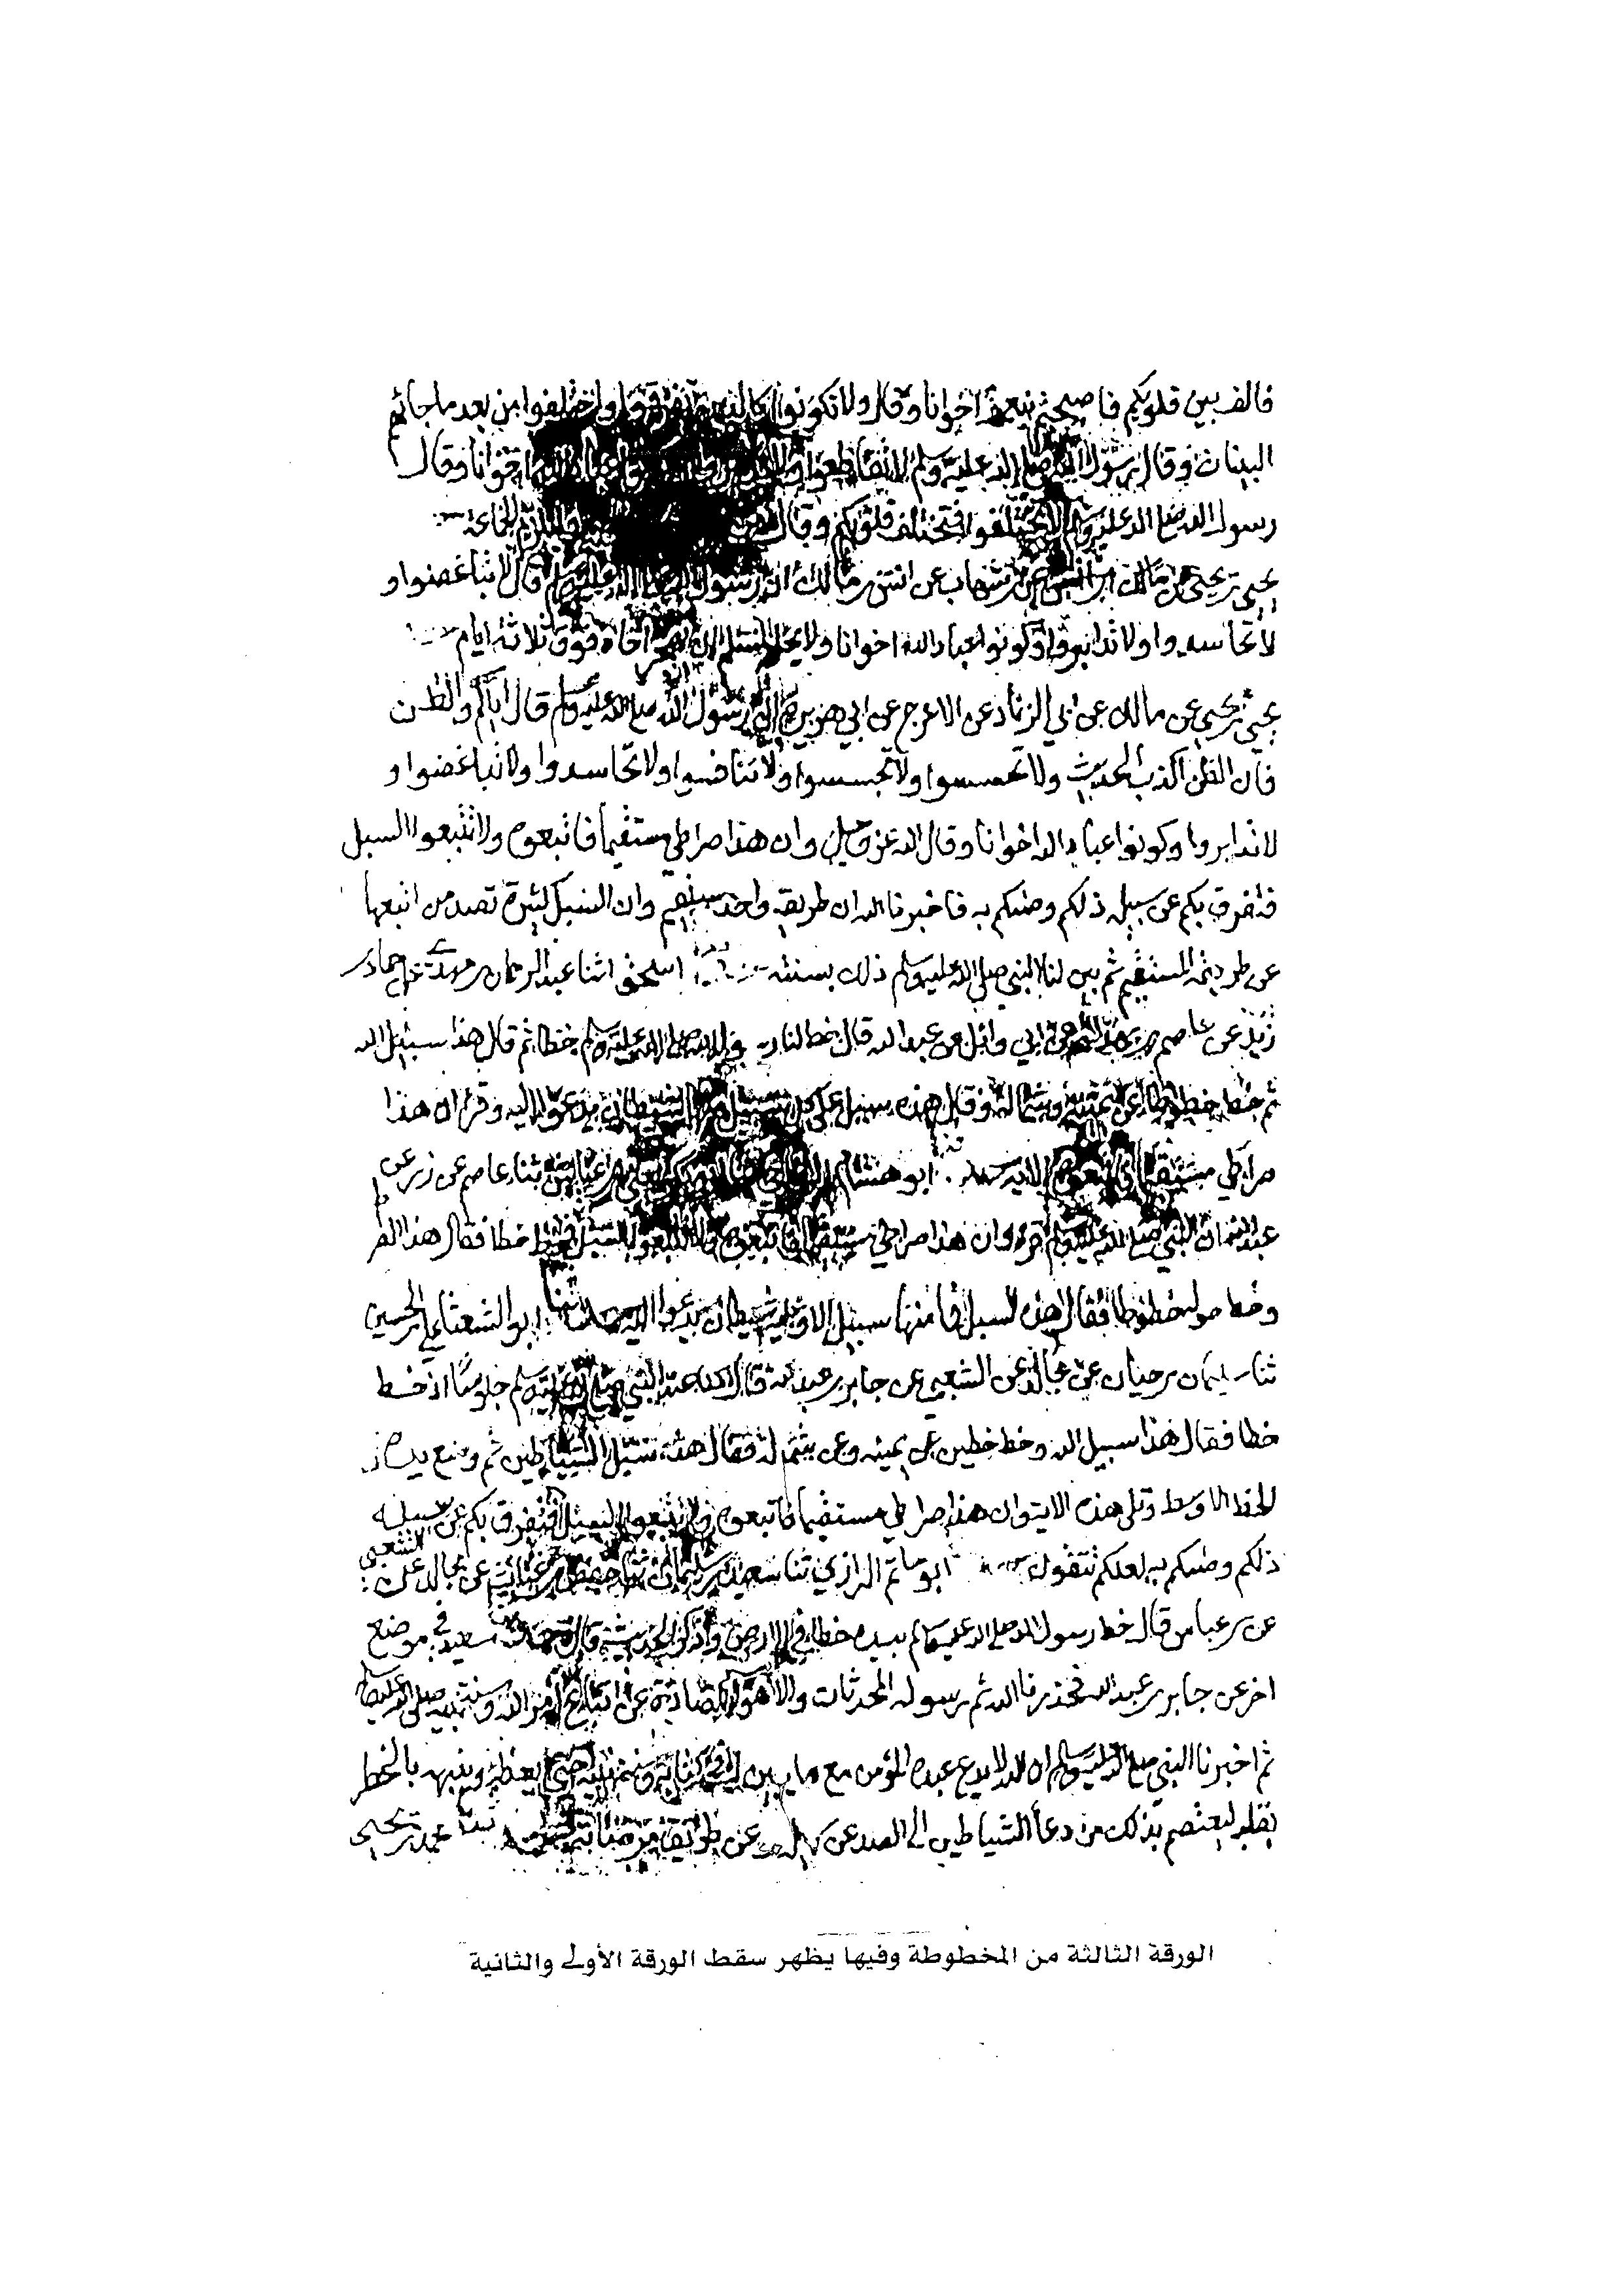 فالف بين قلوبكم فاصبحتم بنعمته اخوانا وقال ولا تكونوا كالذين تفرقوا واختلفوا من بعد ما جائهم
البينات وقال رسول الله صلى الله عليه وسلم لا تقاطعوا اخوانا وقال
رسول الله صلى الله عليه وسلم لا تختلفوا فتختلف قلوبكم وقال
يحيى بن يحيى عن مالك بن انس عن بن شهاب عن انس بن مالك ان رسول الله صلى الله عليه وسلم قال لا تباغضوا و
لا تحاسدوا ولا تدابروا وكونوا عباد الله اخوانا ولا يحل لمسلم ان يهجر اخاه فوق ثلاثة ايام
يحيى بن يحيى عن مالك عن ابي الزناد عن الاعرج عن ابي هريرة ان رسول الله صلى الله عليه وسلم قال اياكم والظن
فان الظن اكذب الحديث ولا تحسسوا ولا تجسسوا ولا تنافسوا ولا تحاسدوا ولا تباغضوا و
لا تدابروا وكونوا عباد الله اخوانا وقال الله عز وجل وان هذا صراطي مستقيما فاتبعوه ولا تتبعوا السبل
فتفرق بكم عن سبيله ذلكم وصاكم به فاخبرنا الله ان طريقه واحد مستقيم وان السبل كثيرة تصد من اتبعها
عن طريقه المستقيم ثم بين لنا النبي صلى الله عليه وسلم ذلك بسنته اسحق انبا عبد الرحمان بن مهدي عن حماد بن
زيد عن عاصم عن ابي وائل عن عبد الله قال خط لنا رسول الله صلى الله عليه وسلم خطا ثم قال هذا سبيل الله
ثم خط خطوطا عن يمينه وشماله وقال هذه سبل على كل سبيل منها شيطان يدعوا اليه وقرا ان هذا
صراطي مستقيما فاتبعوه الاية ابو هشام بن عياش ثنا عاصم عن زر عن
عبد الله ان النبي صلى الله عليه وسلم قرا وان هذا صراطي مستقيما فاتبعوه ولا تتبعوا السبل فخط خطا فقال هذا الصراط
وخط حوله خطوطا فقال هذه السبل فما منها سبيل الا وعليه شيطان يدعوا اليه ثنا ابو الشعثا علي بن الحسين
ثنا سليمان بن حيان عن مجالد عن الشعبي عن جابر بن عبد الله قال كنا عند النبي صلى الله عليه وسلم جلوسا اذ خط
خطا فقال هذا سبيل الله وخط خطين عن يمينه وعن شماله فقال هذه سبل الشياطين ثم وضع يده في
الخط الاوسط وتلى هذه الاية وان هذا صراطي مستقيما فاتبعوه ولا تتبعوا السبل فتفرق بكم عن سبيله
ذلكم وصاكم به لعلكم تتقون ابو حاتم الرازي ثنا سعيد بن سليمان ثنا حفص بن غياث عن مجالد عن الشعبي
عن بن عباس قال خط رسول الله صلى الله عليه وسلم بيده خطا في الارض وذكر الحديث قال سعيد في موضع
اخر عن جابر بن عبد الله فحذرنا الله ثم رسوله المحدثات والاهوا الصادة عن اتباع امر الله وسنة نبيه صلى الله عليه وسلم
ثم اخبرنا النبي صلى الله عليه وسلم ان الله لا يدع عبده المؤمن مع ما بين له في كتابه وسنة نبيه حتى يعظه وينبهه بالخطر
بقلبه ليعتصم بذلك من دعا الشياطين الى الصد عن سبيله وعن طريق مرضاته ثنا محمد بن يحيى
الورقة الثالثة من المخطوطة وفيها يظهر سقط الورقة الأولى والثانية